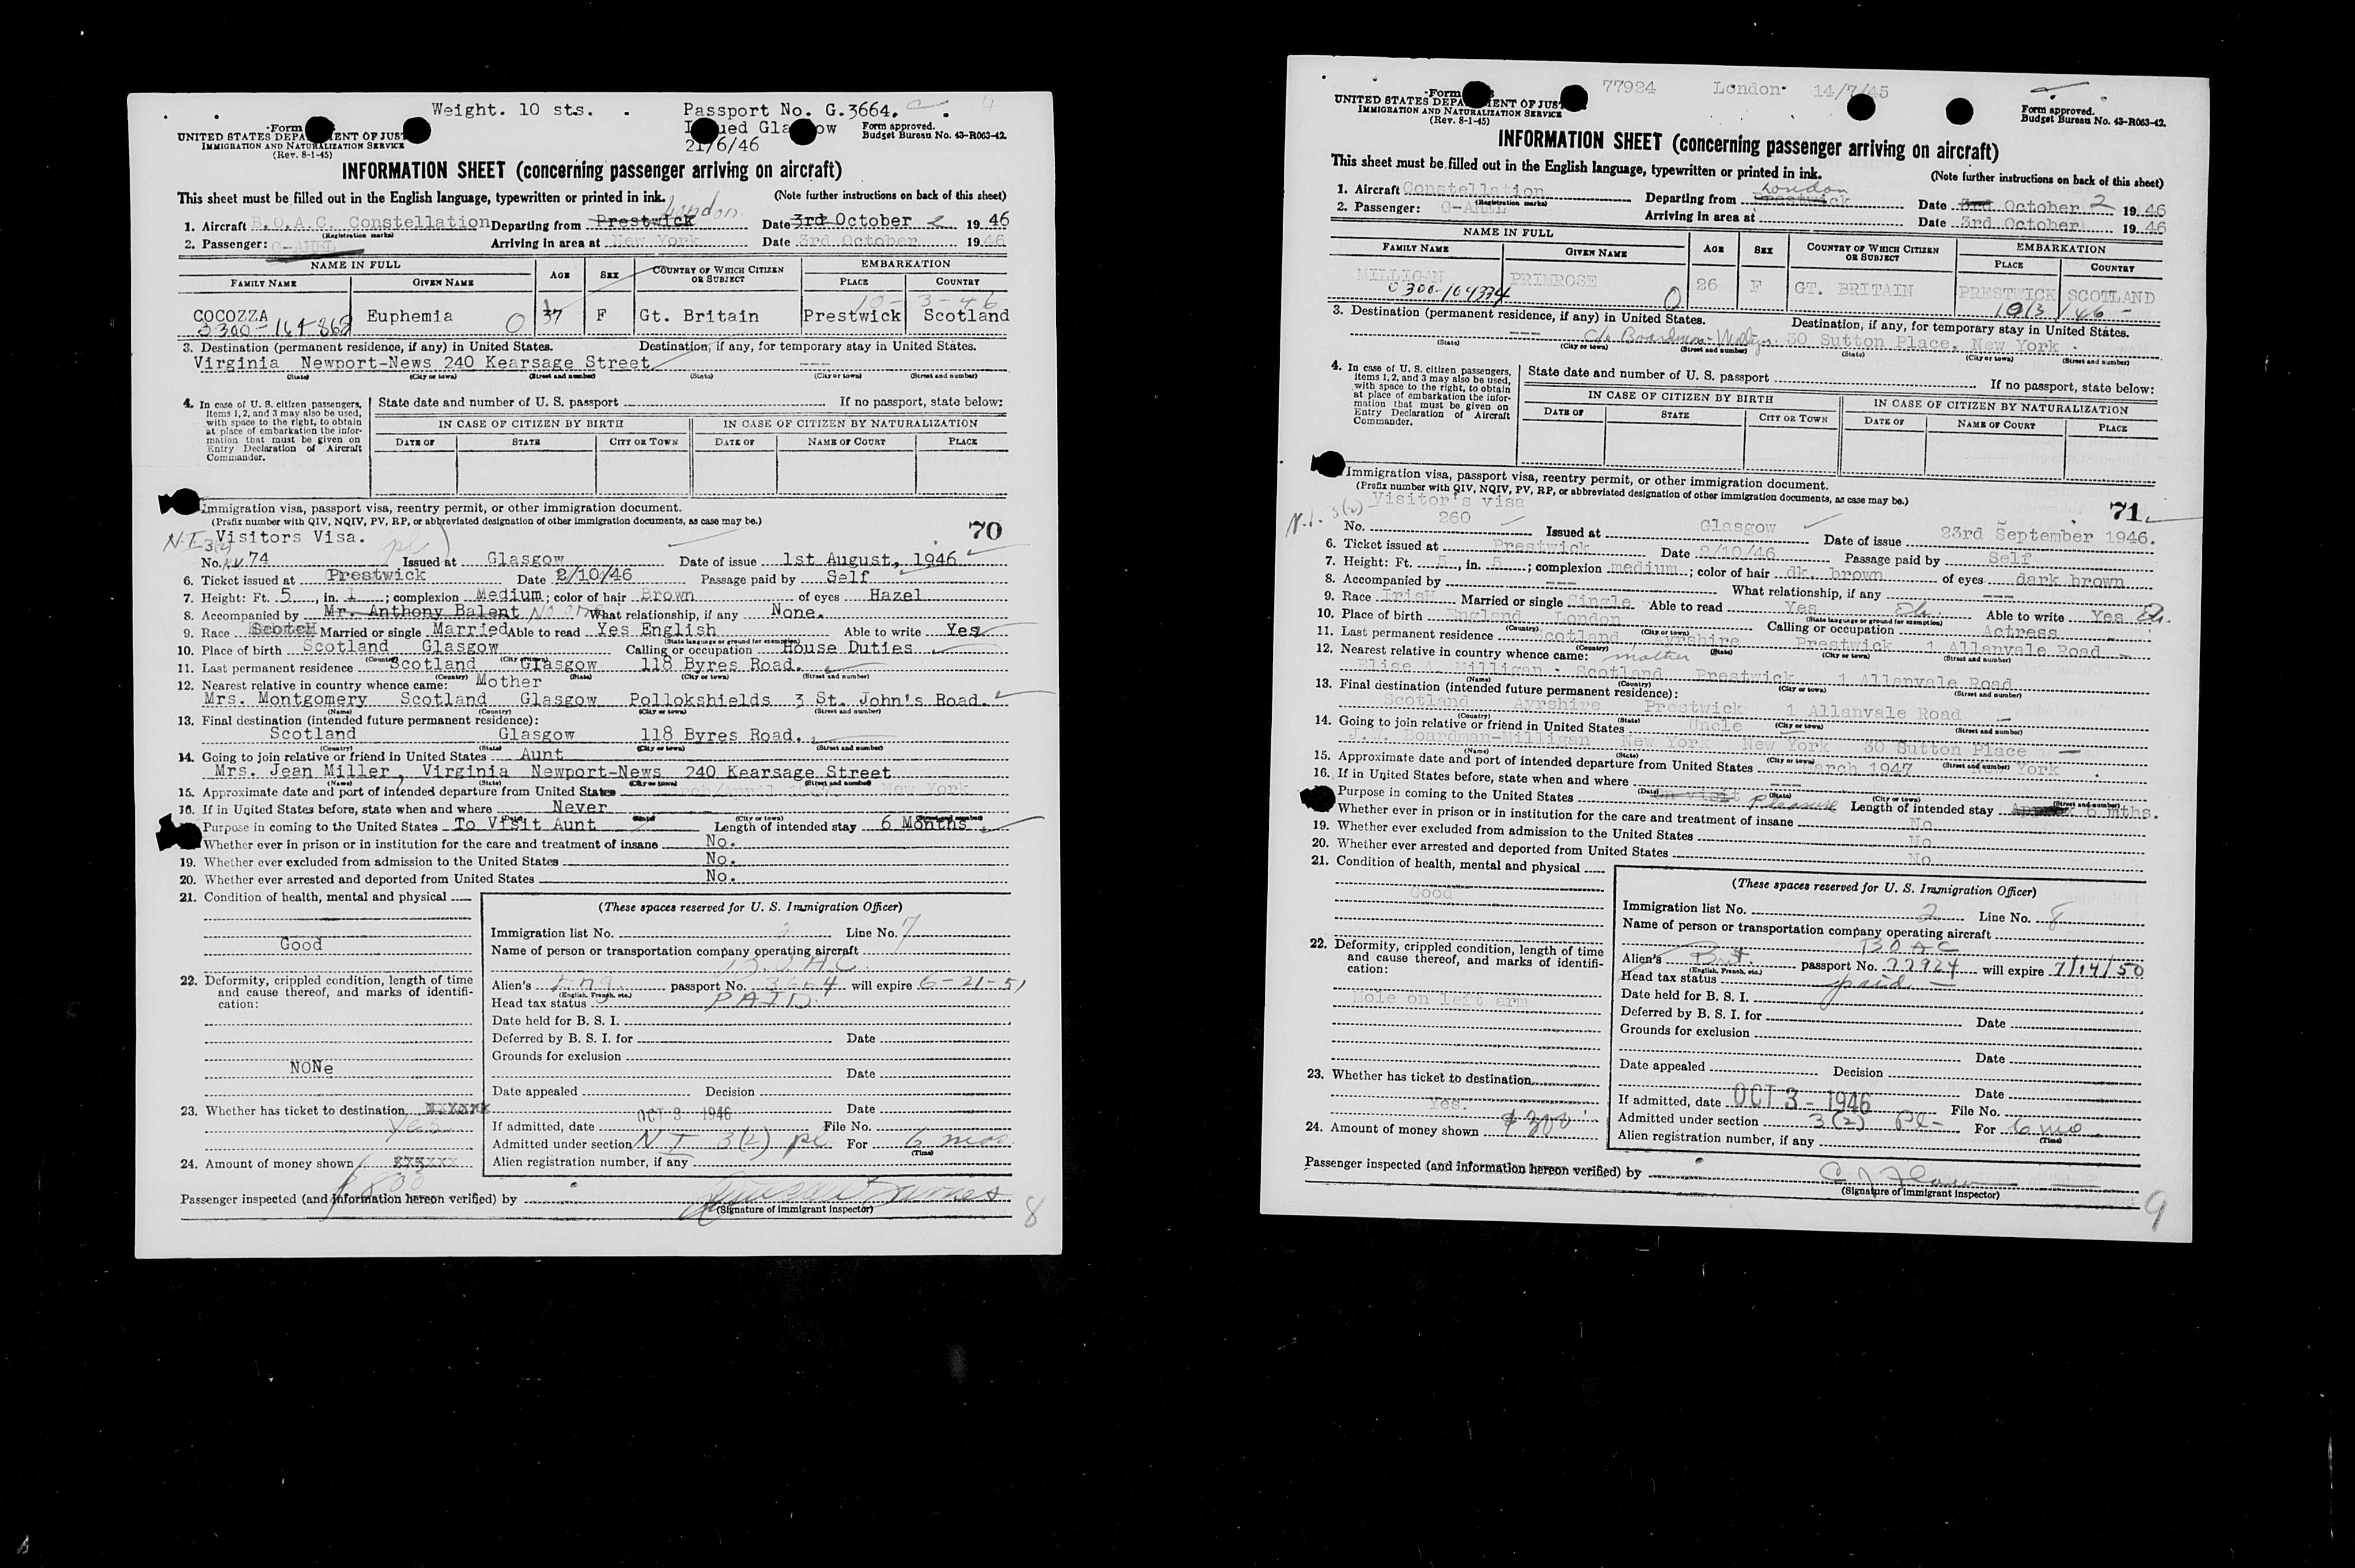 Weight. 10 sts. . Passport No. G.3664.
Form
UNITED STATES DEPA ENT OF JUS
IMMIGRATION AND NATURALIZATION SERVICE
(Rev. 8-1-45)
21/6/46
Form approved.
Budget Bureau No. 43-R063-42.
INFORMATION SHEET (concerning passenger arriving on aircraft)
This sheet must be filled out in the English language, typewritten or printed in ink. (Note further instructions on back of this sheet)
London
1. Aircraft B.O.A.C. Constellation Departing from Prestwick Date 3rd October 2 1946
(Registration marks)
2. Passenger: G-AHEL Arriving in area at New York Date 3rd October 1946
NAME IN FULL AGE SEX COUNTRY OF WHICH CITIZEN OR SUBJECT EMBARKATION
FAMILY NAME GIVEN NAME PLACE COUNTRY
10-3-46
COCOZZA Euphemia 37 F Gt. Britain Prestwick Scotland
3. Destination (permanent residence, if any) in United States. Destination, if any, for temporary stay in United States.
Virginia Newport-News 240 Kearsage Street ---
(State) (City or town) (Street and number) (State) (City or town) (Street and number)
4. In case of U. S. citizen passengers, items 1, 2, and 3 may also be used, with space to the right, to obtain at place of embarkation the information that must be given on Entry Declaration of Aircraft Commander.
State date and number of U. S. passport If no passport, state below:
IN CASE OF CITIZEN BY BIRTH IN CASE OF CITIZEN BY NATURALIZATION
DATE OF STATE CITY OR TOWN DATE OF NAME OF COURT PLACE
Immigration visa, passport visa, reentry permit, or other immigration document.
(Prefix number with QIV, NQIV, PV, RP, or abbreviated designation of other immigration documents, as case may be.) 70
N.I. 3(2) Visitors Visa. pl
No. 74 Issued at Glasgow Date of issue 1st August, 1946
6. Ticket issued at Prestwick Date 2/10/46 Passage paid by Self
7. Height: Ft. 5, in. 1; complexion Medium; color of hair Brown of eyes Hazel
8. Accompanied by Mr. Anthony Balent No one What relationship, if any None.
9. Race Scotch Married or single Married Able to read Yes English Able to write Yes
(State language or ground for exemption)
10. Place of birth Scotland Glasgow Calling or occupation House Duties
(Country) (City or town)
11. Last permanent residence Scotland Glasgow 118 Byres Road.
(Country) (State) (City or town) (Street and number)
12. Nearest relative in country whence came: Mother
Mrs. Montgomery Scotland Glasgow Pollokshields 3 St. John's Road.
(Name) (Country) (City or town) (Street and number)
13. Final destination (intended future permanent residence):
Scotland Glasgow 118 Byres Road.
(Country) (State) (City or town) (Street and number)
14. Going to join relative or friend in United States Aunt
Mrs. Jean Miller, Virginia Newport-News 240 Kearsage Street
(Name) (State) (City or town) (Street and number)
15. Approximate date and port of intended departure from United States New York
16. If in United States before, state when and where Never
(Date) (State) (City or town) (Street and number)
Purpose in coming to the United States To Visit Aunt Length of intended stay 6 Months
Whether ever in prison or in institution for the care and treatment of insane No.
19. Whether ever excluded from admission to the United States No.
20. Whether ever arrested and deported from United States No.
21. Condition of health, mental and physical
Good
22. Deformity, crippled condition, length of time and cause thereof, and marks of identification:
NONe
23. Whether has ticket to destination xxxxxx
Yes
24. Amount of money shown xxxxxx
(These spaces reserved for U. S. Immigration Officer)
Immigration list No. 2 Line No. 7
Name of person or transportation company operating aircraft
B.O.A.C.
Alien's Eng. passport No. 3664 will expire 6-21-51
(English, French, etc.)
Head tax status PAID.
Date held for B. S. I.
Deferred by B. S. I. for Date
Grounds for exclusion
Date
Date appealed Decision
Date
If admitted, date OCT 3 1946 File No.
Admitted under section NI 3(2) pl For 6 mos.
(Time)
Alien registration number, if any
Passenger inspected (and information hereon verified) by
(Signature of immigrant inspector)
8
77924 London 14/7/45
Form
UNITED STATES DEPA ENT OF JUS
IMMIGRATION AND NATURALIZATION SERVICE
(Rev. 8-1-45)
Form approved.
Budget Bureau No. 43-R063-42.
INFORMATION SHEET (concerning passenger arriving on aircraft)
This sheet must be filled out in the English language, typewritten or printed in ink. (Note further instructions on back of this sheet)
London
1. Aircraft Constellation Departing from Prestwick Date 3rd October 2 1946
(Registration marks)
2. Passenger: G-AHEL Arriving in area at Date 3rd October 1946
NAME IN FULL AGE SEX COUNTRY OF WHICH CITIZEN OR SUBJECT EMBARKATION
FAMILY NAME GIVEN NAME PLACE COUNTRY
MILLIGAN PRIMROSE 26 F GT. BRITAIN PRESTWICK SCOTLAND
0300-164334 0 10/3/46
3. Destination (permanent residence, if any) in United States. Destination, if any, for temporary stay in United States.
--- c/o Boardman- 30 Sutton Place, New York
(State) (City or town) (Street and number) (State) (City or town) (Street and number)
4. In case of U. S. citizen passengers, items 1, 2, and 3 may also be used, with space to the right, to obtain at place of embarkation the information that must be given on Entry Declaration of Aircraft Commander.
State date and number of U. S. passport If no passport, state below:
IN CASE OF CITIZEN BY BIRTH IN CASE OF CITIZEN BY NATURALIZATION
DATE OF STATE CITY OR TOWN DATE OF NAME OF COURT PLACE
Immigration visa, passport visa, reentry permit, or other immigration document.
(Prefix number with QIV, NQIV, PV, RP, or abbreviated designation of other immigration documents, as case may be.) 71
N.I. 3(2) Visitor's visa
No. 260 Issued at Glasgow Date of issue 23rd September 1946.
6. Ticket issued at Prestwick Date 2/10/46 Passage paid by Self
7. Height: Ft. 5, in. 5; complexion medium; color of hair dk. brown of eyes dark brown
8. Accompanied by --- What relationship, if any ---
9. Race Irish Married or single Single Able to read Yes Able to write Yes
(State language or ground for exemption)
10. Place of birth England London Calling or occupation Actress
(Country) (City or town)
11. Last permanent residence Scotland, Ayrshire Prestwick 1 Allanvale Road
(Country) (State) (City or town) (Street and number)
12. Nearest relative in country whence came: mother
Elise A. Milligan - Scotland Prestwick 1 Allanvale Road
(Name) (Country) (City or town) (Street and number)
13. Final destination (intended future permanent residence):
Scotland Ayrshire Prestwick 1 Allanvale Road
(Country) (State) (City or town) (Street and number)
14. Going to join relative or friend in United States Uncle
J.W. Boardman-Milligan New York New York 30 Sutton Place
(Name) (State) (City or town) (Street and number)
15. Approximate date and port of intended departure from United States March 1947 New York
16. If in United States before, state when and where ---
(Date) (State) (City or town) (Street and number)
Purpose in coming to the United States on visit pleasure Length of intended stay 6 mths.
Whether ever in prison or in institution for the care and treatment of insane No
19. Whether ever excluded from admission to the United States No
20. Whether ever arrested and deported from United States No
21. Condition of health, mental and physical
Good
22. Deformity, crippled condition, length of time and cause thereof, and marks of identification:
Mole on left arm
23. Whether has ticket to destination
Yes.
24. Amount of money shown $300
(These spaces reserved for U. S. Immigration Officer)
Immigration list No. 2 Line No. 8
Name of person or transportation company operating aircraft
BOAC
Alien's Brit. passport No. 77924 will expire 7/14/50
(English, French, etc.)
Head tax status paid
Date held for B. S. I.
Deferred by B. S. I. for Date
Grounds for exclusion
Date
Date appealed Decision
Date
If admitted, date OCT 3 - 1946 File No.
Admitted under section 3(2) Pl- For 6 mo
(Time)
Alien registration number, if any
Passenger inspected (and information hereon verified) by
(Signature of immigrant inspector)
9